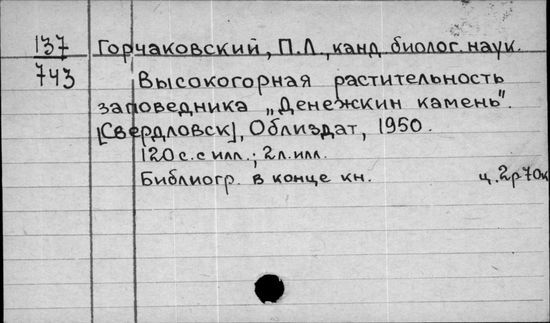 137 Горчаковский, П.Л., канд. биолог. наук.
743 Высокогорная растительность
заповедника „Денежкин камень".
[Свердловск], Облиздат, 1950.
120 с. с илл.; 2 л. илл.
Библиогр. в конце кн. ц. 2р70к